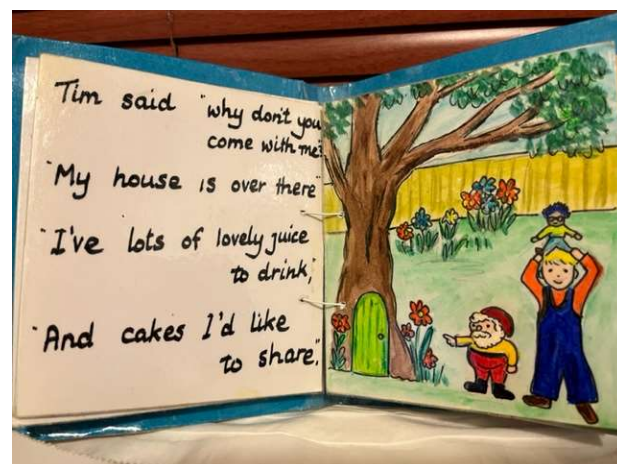 Tim said "why don't you
come with me?"
"My house is over there"
"I've lots of lovely juice
to drink,"
"And cakes I'd like
to share."